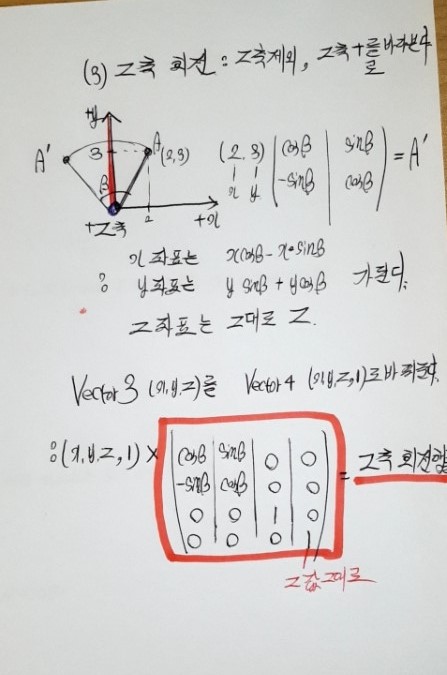 (3) Z축 회전 : Z축제외, Z축 +를 바라본다
로
+y
A'
3
A
(2,3)
β
2
+x
+Z축
(2.3) | cosβ | sinβ | = A'
x y | -sinβ | cosβ |
x 좌표는 xcosβ - x•sinβ
: y 좌표는 y sinβ + ycosβ 가된다.
Z 좌표는 Z대로 Z.
Vector3 (x,y,z)를 Vector4 (x,y,z,1)로 바꿔준다.
: (x,y,z,1) × | cosβ | sinβ | 0 | 0 | = Z축 회전행
-sinβ cosβ 0 0
0 0 1 0
0 0 0 1
Z값 그대로